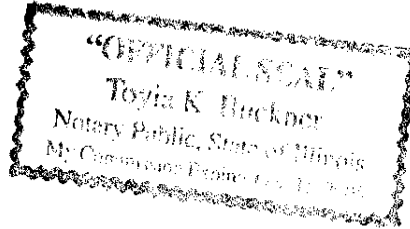 “OFFICIAL SEAL”
Toyia K Buckner
Notary Public, State of Illinois
My Commission Expires